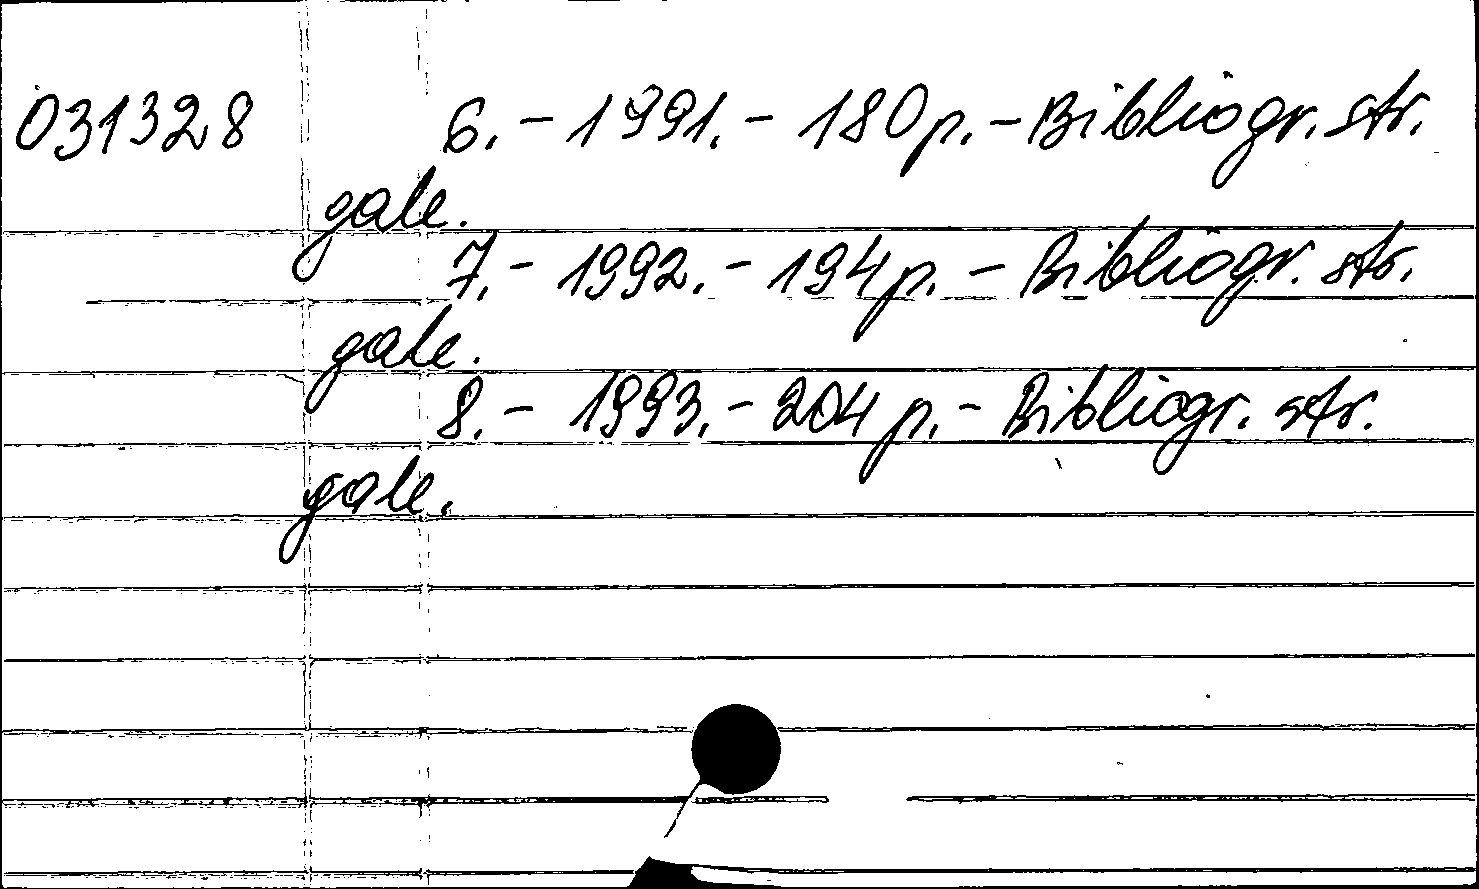 031328 6. - 1991. - 180 p. - Bibliogr. str.
gale.
7. - 1992. - 194 p. - Bibliogr. str.
gale.
8. - 1993. - 204 p. - Bibliogr. str.
gale.